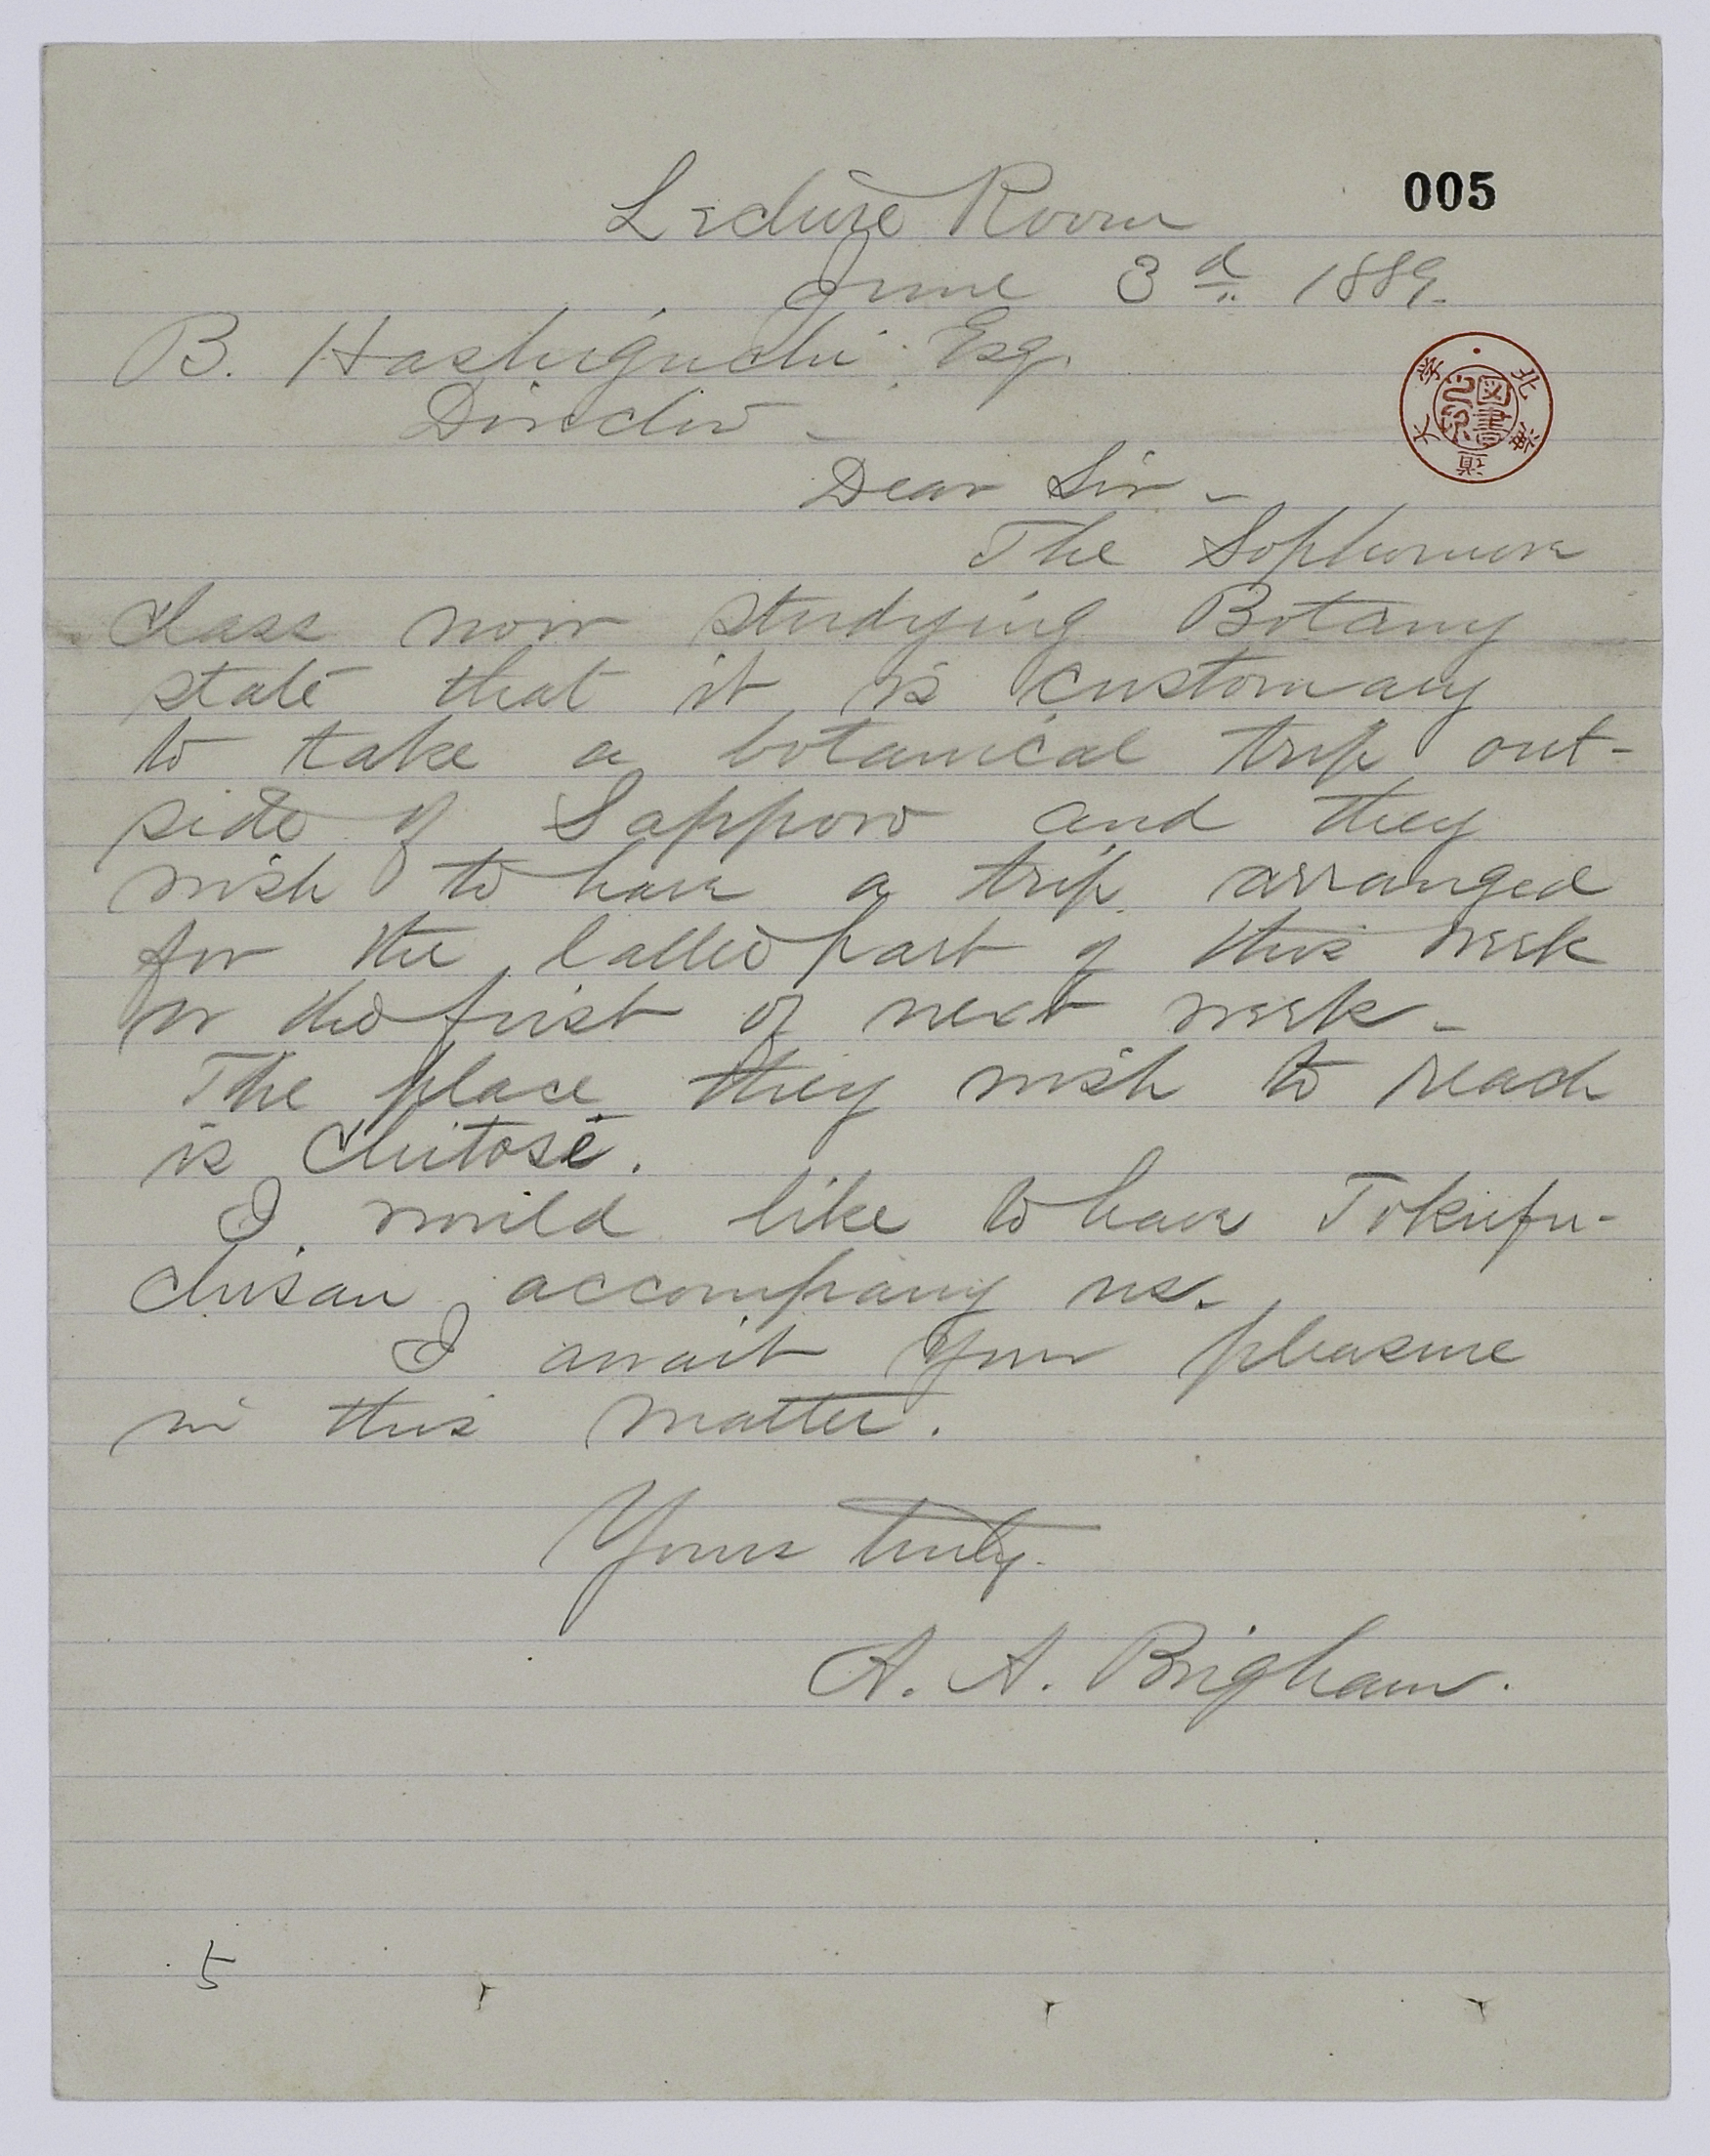 005
Lecture Room
June 3d 1889.
B. Hashiguchi, Esq.
Director -
Dear Sir -
The Sophomore
class now studying Botany
state that it is customary
to take a botanical trip out-
side of Sapporo and they
wish to have a trip arranged
for the latter part of this week
or the first of next week -
The place they wish to reach
is Chitosé.
I would like to have Tokufu-
chisan accompany us.
I await your pleasure
in this matter.
Yours truly.
A. A. Brigham.
5
北海道大学
図書之印